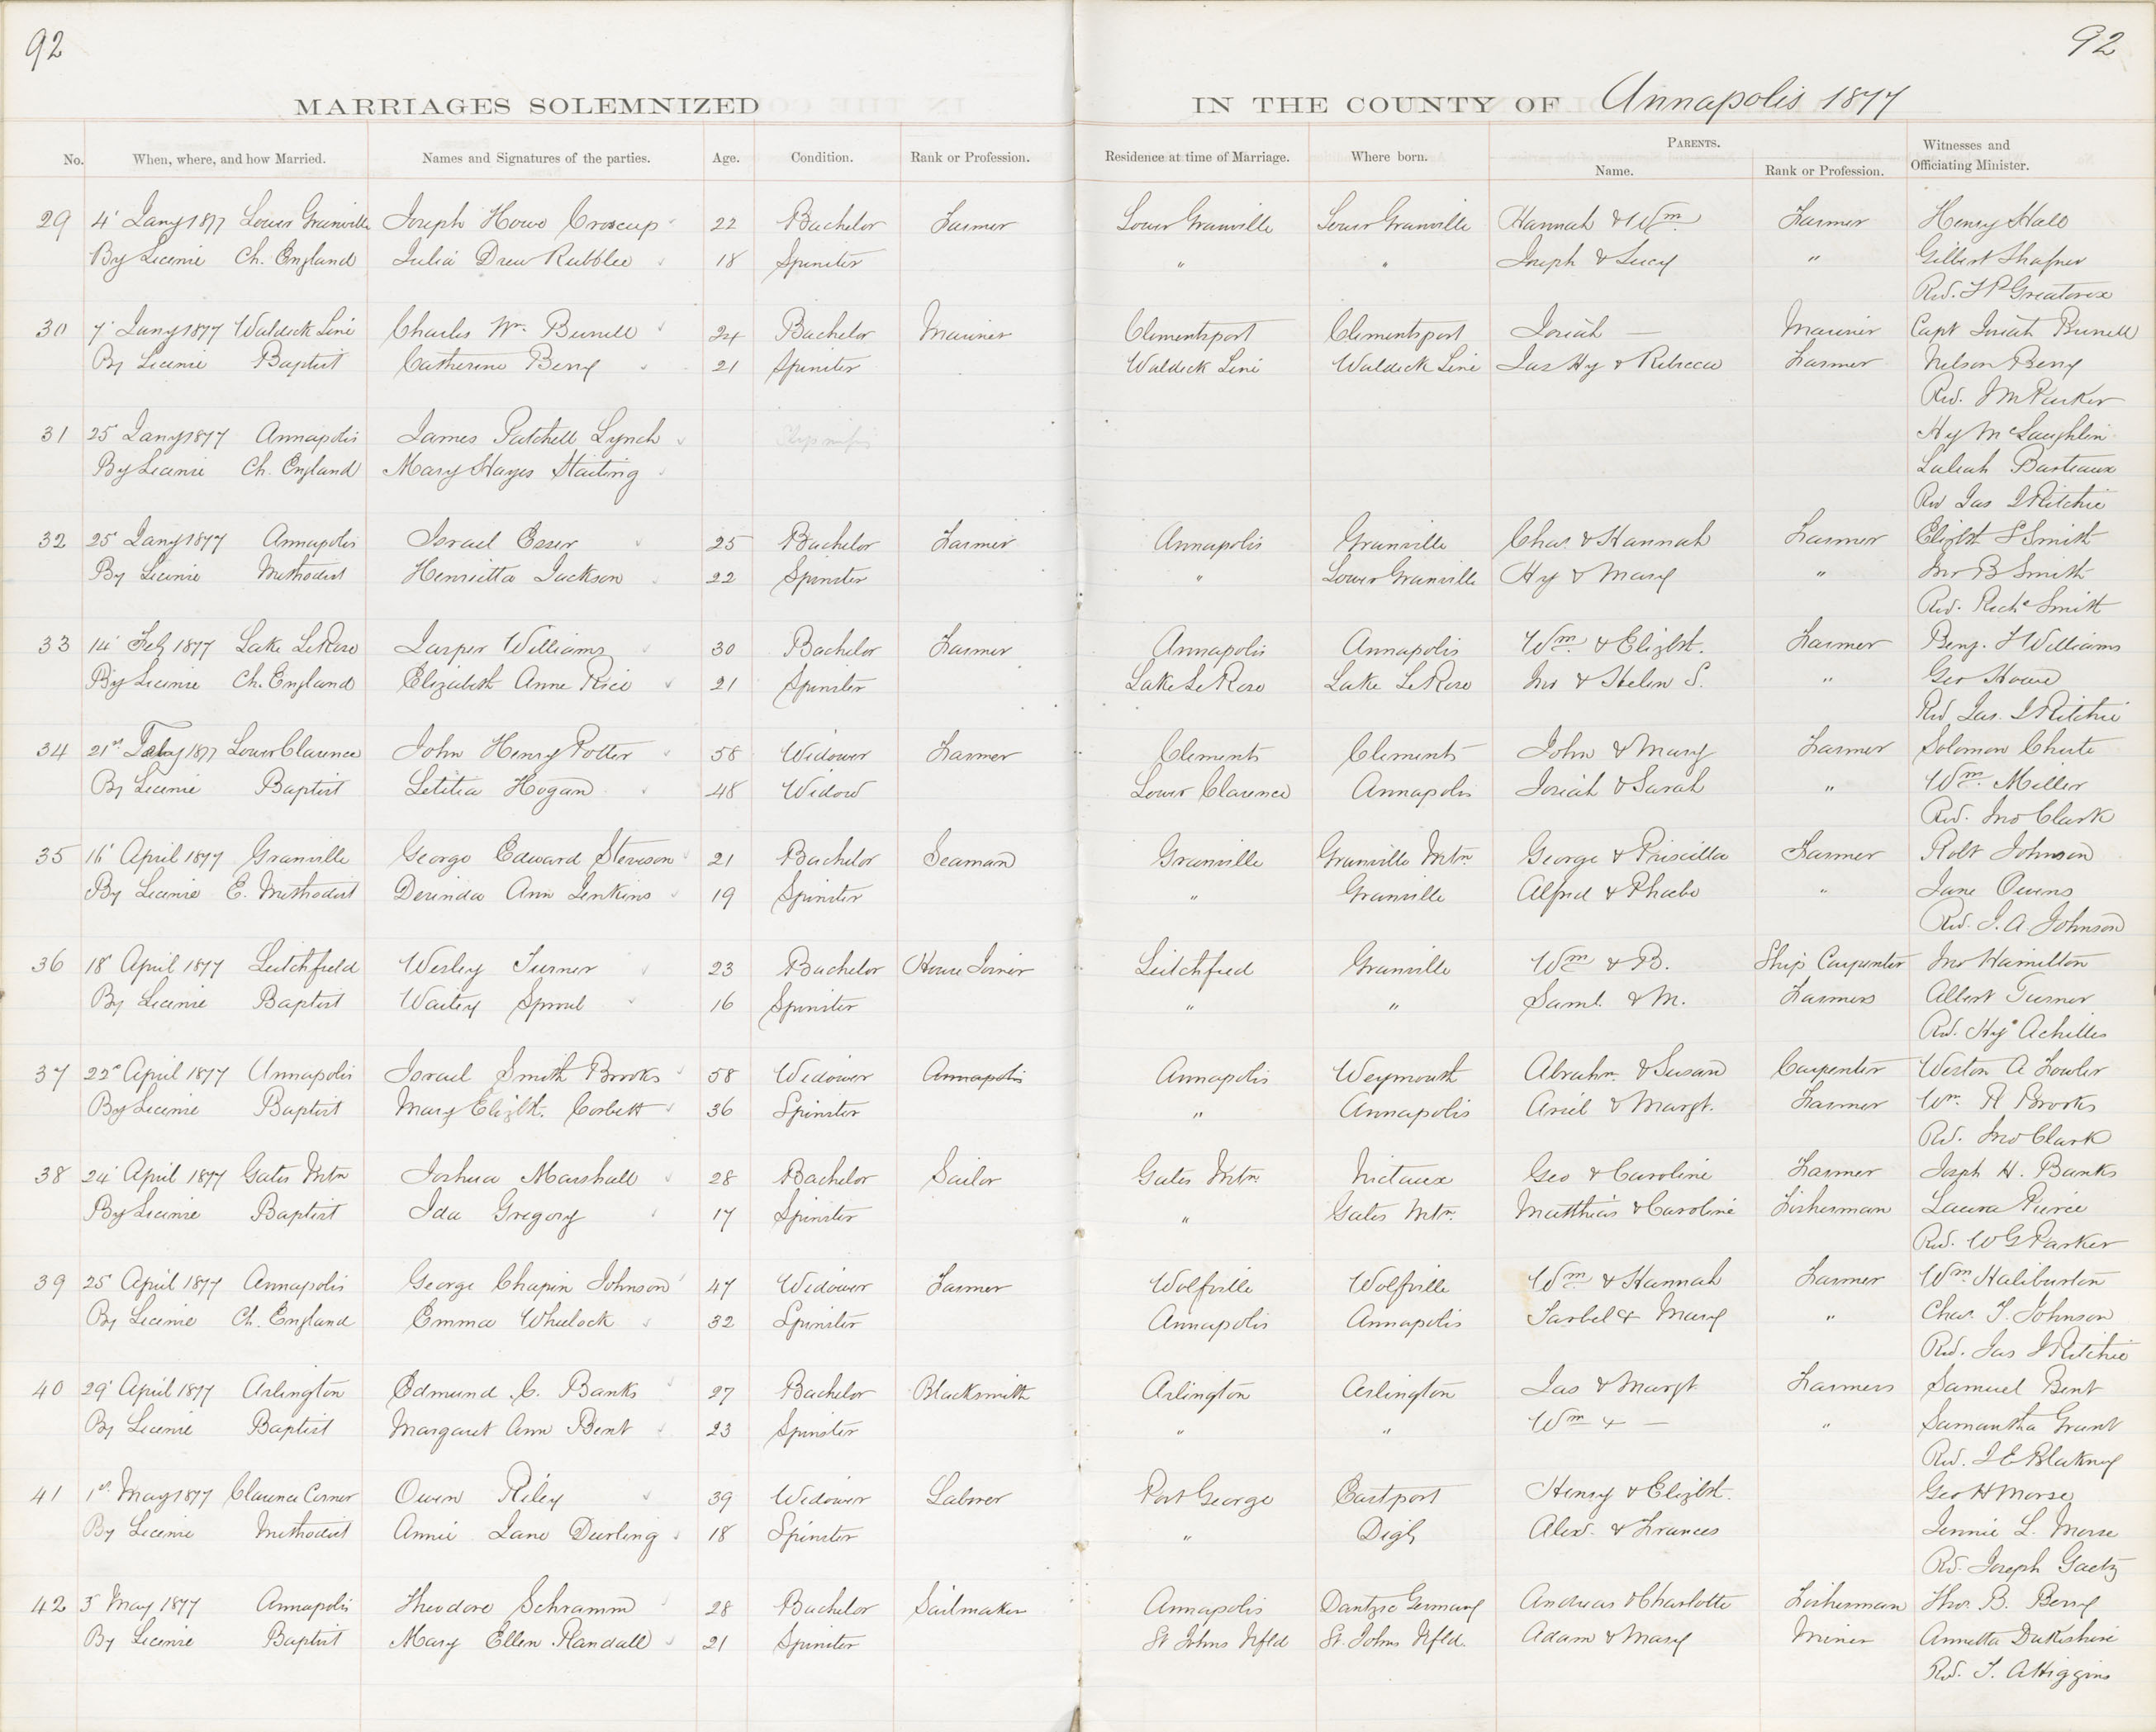 92
92
MARRIAGES SOLEMNIZED IN THE COUNTY OF Annapolis 1877
No. When, where, and how Married. Names and Signatures of the parties. Age. Condition. Rank or Profession. Residence at time of Marriage. Where born. PARENTS. Name. Rank or Profession. Witnesses and Officiating Minister.
29 4' Jany 1877 Lower Granville Joseph Howe Croscup 22 Bachelor Farmer Lower Granville Lower Granville Hannah & Wm. Farmer Henry Hall
By License Ch. England Julia Drew Rubblee 18 Spinster " " Joseph & Lucy " Gilbert Shafner
Rev. H P Greatorex
30 7' Jany 1877 Waldeck Line Charles Wm. Burrell 24 Bachelor Mariner Clementsport Clementsport Josiah — Mariner Capt Josiah Burrell
By License Baptist Catherine Berry 21 Spinster Waldeck Line Waldeck Line Jas Hy & Rebecca Farmer Nelson Berry
Rev. J M Parker
31 25 Jany 1877 Annapolis James Patchell Lynch Hy McLaughlin
By License Ch. England Mary Hayes Starting Barteaux
Rev Jas J Ritchie
32 25' Jany 1877 Annapolis Israel Esser 25 Bachelor Farmer Annapolis Granville Chas. & Hannah Farmer Elizbt S Smith
By License Methodist Henrietta Jackson 22 Spinster " Lower Granville Hy & Mary " Jno B Smith
Rev. Richd Smith
33 14' Feby 1877 Lake LeRose Jasper Williams 30 Bachelor Farmer Annapolis Annapolis Wm. & Elizbt. Farmer Benj. F Williams
By License Ch. England Elizabeth Anne Rice 21 Spinster Lake LeRose Lake LeRose Jno & Helen S. " Geo Howe
Rev Jas. J Ritchie
34 21st Feby 1877 Lower Clarence John Henry Potter 58 Widower Farmer Clements Clements John & Mary Farmer Solomon Chute
By License Baptist Letitia Hogan 48 Widow Lower Clarence Annapolis Josiah & Sarah " Wm. Miller
Rev. Jno Clark
35 16' April 1877 Granville George Edward Steveson 21 Bachelor Seaman Granville Granville Mtn. George & Priscilla Farmer Robt Johnson
By License E. Methodist Derinda Ann Jenkins 19 Spinster " Granville Alfred & Phoebe " Jane Owens
Rev. J. A. Johnson
36 18' April 1877 Leitchfield Wesley Turner 23 Bachelor House Joiner Leitchfield Granville Wm & B. Ship Carpenter Jno Hamilton
By License Baptist Waitey Sproul 16 Spinster " " Saml. & M. Farmers Albert Turner
Rev. Hy Achilles
37 22d April 1877 Annapolis Israel Smith Brooks 58 Widower Annapolis Annapolis Weymouth Abrahm. & Susan Carpenter Weston A Fowler
By License Baptist Mary Elizbt. Corbett 36 Spinster " Annapolis Ariel & Margt. Farmer Wm. R Brooks
Rev. Jno Clark
38 24' April 1877 Gates Mtn Joshua Marshall 28 Bachelor Sailor Gates Mtn. Nictaux Geo & Caroline Farmer Josph H. Banks
By License Baptist Ida Gregory 17 Spinster " Gates Mtn. Matthias & Caroline Fisherman Laura Pierce
Rev. W G Parker
39 25' April 1877 Annapolis George Chapin Johnson 47 Widower Farmer Wolfville Wolfville Wm & Hannah Farmer Wm. Haliburton
By License Ch. England Emma Wheelock 32 Spinster Annapolis Annapolis & Mary " Chas. F. Johnson
Rev. Jas J Ritchie
40 29' April 1877 Arlington Edmund C. Banks 27 Bachelor Blacksmith Arlington Arlington Jas & Margt Farmers Samuel Bent
By License Baptist Margaret Ann Bent 23 Spinster " " Wm & — " Samantha Grant
Rev. J E Blakney
41 1st. May 1877 Clarence Corner Owen Riley 39 Widower Laborer Port George Eastport Henry & Elizbt. Geo H Morse
By License Methodist Annie Jane Durling 18 Spinster " Digby Alex. & Frances Jennie L. Morse
Rev. Joseph Gaetz
42 5' May 1877 Annapolis Theodore Schramm 28 Bachelor Sailmaker Annapolis Dantzic Germany Andreas & Charlotte Fisherman Thos. B. Berry
By License Baptist Mary Ellen Randall 21 Spinster St Johns Nfld St. Johns Nfld. Adam & Mary Miner Annetta Dukeshire
Rev. T. A Higgins